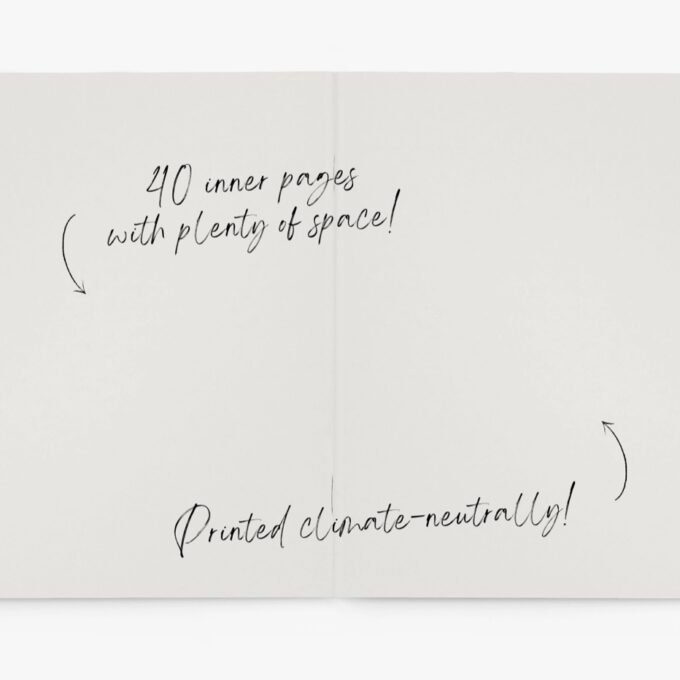 40 inner pages
with plenty of space!
Printed climate-neutrally!